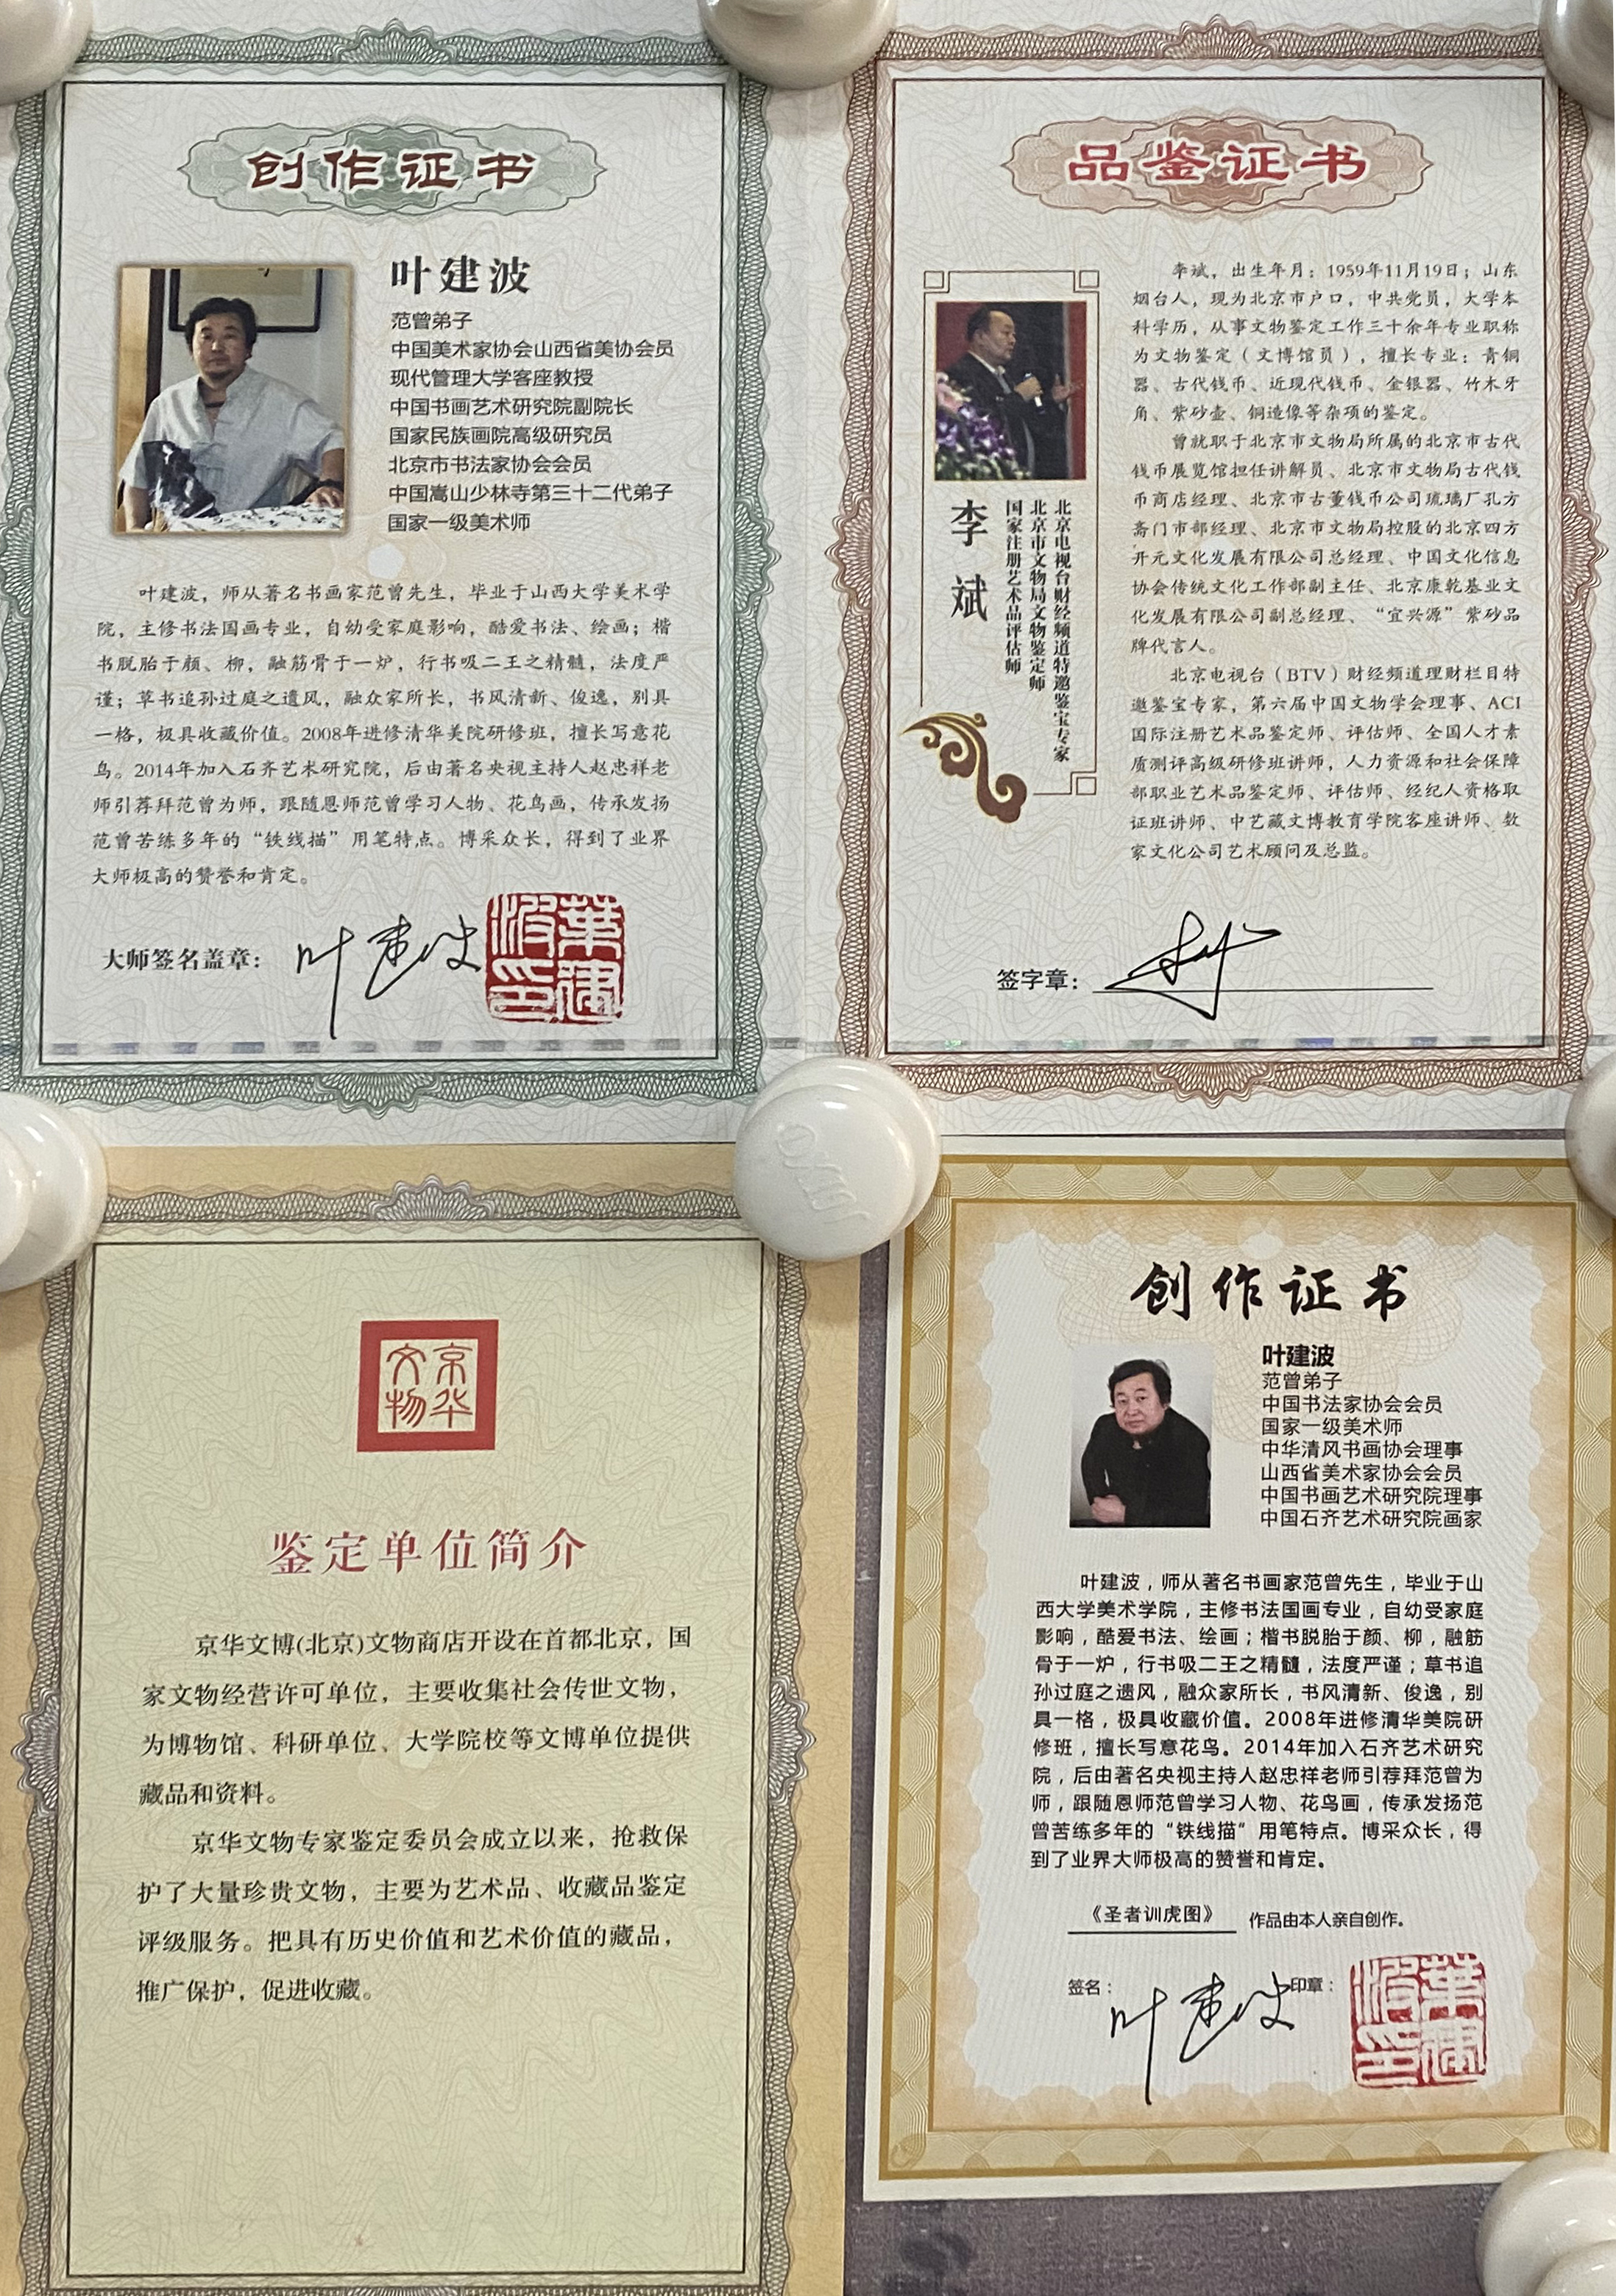 创作证书
叶建波
范曾弟子
中国美术家协会山西省美协会员
现代管理大学客座教授
中国书画艺术研究院副院长
国家民族画院高级研究员
北京市书法家协会会员
中国嵩山少林寺第三十二代弟子
国家一级美术师
叶建波，师从著名书画家范曾先生，毕业于山西大学美术学
院，主修书法国画专业，自幼受家庭影响，酷爱书法、绘画；楷
书脱胎于颜、柳，融筋骨于一炉，行书吸二王之精髓，法度严
谨；草书追孙过庭之遗风，融众家所长，书风清新、俊逸，别具
一格，极具收藏价值。2008年进修清华美院研修班，擅长写意花
鸟。2014年加入石齐艺术研究院，后由著名央视主持人赵忠祥老
师引荐拜范曾为师，跟随恩师范曾学习人物、花鸟画，传承发扬
范曾苦练多年的“铁线描”用笔特点。博采众长，得到了业界
大师极高的赞誉和肯定。
大师签名盖章：
叶建波
葉建波印
品鉴证书
李斌
国家注册艺术品评估师
北京市文物局文物鉴定师
北京电视台财经频道特邀鉴宝专家
李斌，出生年月：1959年11月19日；山东
烟台人，现为北京市户口，中共党员，大学本
科学历，从事文物鉴定工作三十余年专业职称
为文物鉴定（文博馆员），擅长专业：青铜
器、古代钱币、近现代钱币、金银器、竹木牙
角、紫砂壶、铜造像等杂项的鉴定。
曾就职于北京市文物局所属的北京市古代
钱币展览馆担任讲解员、北京市文物局古代钱
币商店经理、北京市古董钱币公司琉璃厂孔方
斋门市部经理、北京市文物局控股的北京四方
开元文化发展有限公司总经理、中国文化信息
协会传统文化工作部副主任、北京康乾基业文
化发展有限公司副总经理、“宜兴源”紫砂品
牌代言人。
北京电视台（BTV）财经频道理财栏目特
邀鉴宝专家，第六届中国文物学会理事、ACI
国际注册艺术品鉴定师、评估师、全国人才素
质测评高级研修班讲师，人力资源和社会保障
部职业艺术品鉴定师、评估师、经纪人资格取
证班讲师、中艺藏文博教育学院客座讲师、数
家文化公司艺术顾问及总监。
签字章：
京华文物
鉴定单位简介
京华文博(北京)文物商店开设在首都北京，国
家文物经营许可单位，主要收集社会传世文物，
为博物馆、科研单位、大学院校等文博单位提供
藏品和资料。
京华文物专家鉴定委员会成立以来，抢救保
护了大量珍贵文物，主要为艺术品、收藏品鉴定
评级服务。把具有历史价值和艺术价值的藏品，
推广保护，促进收藏。
创作证书
叶建波
范曾弟子
中国书法家协会会员
国家一级美术师
中华清风书画协会理事
山西省美术家协会会员
中国书画艺术研究院理事
中国石齐艺术研究院画家
叶建波，师从著名书画家范曾先生，毕业于山
西大学美术学院，主修书法国画专业，自幼受家庭
影响，酷爱书法、绘画；楷书脱胎于颜、柳，融筋
骨于一炉，行书吸二王之精髓，法度严谨；草书追
孙过庭之遗风，融众家所长，书风清新、俊逸，别
具一格，极具收藏价值。2008年进修清华美院研
修班，擅长写意花鸟。2014年加入石齐艺术研究
院，后由著名央视主持人赵忠祥老师引荐拜范曾为
师，跟随恩师范曾学习人物、花鸟画，传承发扬范
曾苦练多年的“铁线描”用笔特点。博采众长，得
到了业界大师极高的赞誉和肯定。
《圣者训虎图》 作品由本人亲自创作。
签名： 叶建波 印章：
葉建波印